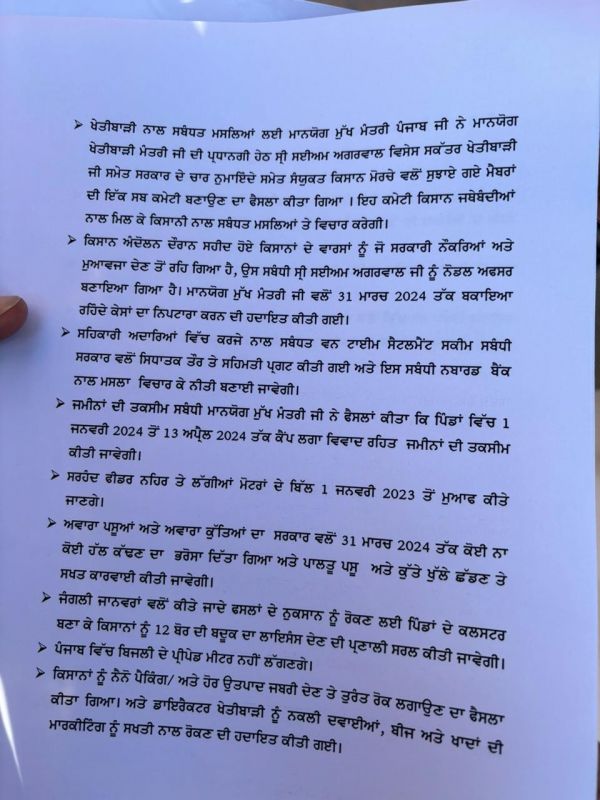 ➤ ਖੇਤੀਬਾੜੀ ਨਾਲ ਸਬੰਧਤ ਮਸਲਿਆਂ ਲਈ ਮਾਨਯੋਗ ਮੁੱਖ ਮੰਤਰੀ ਪੰਜਾਬ ਜੀ ਨੇ ਮਾਨਯੋਗ
ਖੇਤੀਬਾੜੀ ਮੰਤਰੀ ਜੀ ਦੀ ਪ੍ਰਧਾਨਗੀ ਹੇਠ ਸ੍ਰੀ ਸਈਅਮ ਅਗਰਵਾਲ ਵਿਸੇਸ ਸਕੱਤਰ ਖੇਤੀਬਾੜੀ
ਜੀ ਸਮੇਤ ਸਰਕਾਰ ਦੇ ਚਾਰ ਨੁਮਾਇੰਦੇ ਸਮੇਤ ਸੰਯੁਕਤ ਕਿਸਾਨ ਮੋਰਚੇ ਵਲੋਂ ਸੁਝਾਏ ਗਏ ਮੈਬਰਾਂ
ਦੀ ਇੱਕ ਸਬ ਕਮੇਟੀ ਬਣਾਉਣ ਦਾ ਫੈਸਲਾ ਕੀਤਾ ਗਿਆ । ਇਹ ਕਮੇਟੀ ਕਿਸਾਨ ਜਥੇਬੰਦੀਆਂ
ਨਾਲ ਮਿਲ ਕੇ ਕਿਸਾਨੀ ਨਾਲ ਸਬੰਧਤ ਮਸਲਿਆਂ ਤੇ ਵਿਚਾਰ ਕਰੇਗੀ।
➤ ਕਿਸਾਨ ਅੰਦੋਲਨ ਦੌਰਾਨ ਸਹੀਦ ਹੋਏ ਕਿਸਾਨਾਂ ਦੇ ਵਾਰਸਾਂ ਨੂੰ ਜੋ ਸਰਕਾਰੀ ਨੌਕਰਿਆਂ ਅਤੇ
ਮੁਆਵਜਾ ਦੇਣ ਤੋਂ ਰਹਿ ਗਿਆ ਹੈ, ਉਸ ਸਬੰਧੀ ਸ੍ਰੀ ਸਈਅਮ ਅਗਰਵਾਲ ਜੀ ਨੂੰ ਨੋਡਲ ਅਫਸਰ
ਬਣਾਇਆ ਗਿਆ ਹੈ। ਮਾਨਯੋਗ ਮੁੱਖ ਮੰਤਰੀ ਜੀ ਵਲੋਂ 31 ਮਾਰਚ 2024 ਤੱਕ ਬਕਾਇਆ
ਰਹਿੰਦੇ ਕੇਸਾਂ ਦਾ ਨਿਪਟਾਰਾ ਕਰਨ ਦੀ ਹਦਾਇਤ ਕੀਤੀ ਗਈ।
➤ ਸਹਿਕਾਰੀ ਅਦਾਰਿਆਂ ਵਿੱਚ ਕਰਜੇ ਨਾਲ ਸਬੰਧਤ ਵਨ ਟਾਈਮ ਸੈਟਲਮੈਂਟ ਸਕੀਮ ਸਬੰਧੀ
ਸਰਕਾਰ ਵਲੋਂ ਸਿਧਾਤਕ ਤੌਰ ਤੇ ਸਹਿਮਤੀ ਪ੍ਰਗਟ ਕੀਤੀ ਗਈ ਅਤੇ ਇਸ ਸਬੰਧੀ ਨਬਾਰਡ ਬੈਂਕ
ਨਾਲ ਮਸਲਾ ਵਿਚਾਰ ਕੇ ਨੀਤੀ ਬਣਾਈ ਜਾਵੇਗੀ।
➤ ਜਮੀਨਾਂ ਦੀ ਤਕਸੀਮ ਸਬੰਧੀ ਮਾਨਯੋਗ ਮੁੱਖ ਮੰਤਰੀ ਜੀ ਨੇ ਫੈਸਲਾਂ ਕੀਤਾ ਕਿ ਪਿੰਡਾਂ ਵਿੱਚ 1
ਜਨਵਰੀ 2024 ਤੋਂ 13 ਅਪ੍ਰੈਲ 2024 ਤੱਕ ਕੈਂਪ ਲਗਾ ਵਿਵਾਦ ਰਹਿਤ ਜਮੀਨਾਂ ਦੀ ਤਕਸੀਮ
ਕੀਤੀ ਜਾਵੇਗੀ।
➤ ਸਰਹੰਦ ਫੀਡਰ ਨਹਿਰ ਤੇ ਲੱਗੀਆਂ ਮੋਟਰਾਂ ਦੇ ਬਿੱਲ 1 ਜਨਵਰੀ 2023 ਤੋਂ ਮੁਆਫ ਕੀਤੇ
ਜਾਣਗੇ।
➤ ਅਵਾਰਾ ਪਸੂਆਂ ਅਤੇ ਅਵਾਰਾ ਕੁੱਤਿਆਂ ਦਾ ਸਰਕਾਰ ਵਲੋਂ 31 ਮਾਰਚ 2024 ਤੱਕ ਕੋਈ ਨਾ
ਕੋਈ ਹੱਲ ਕੱਢਣ ਦਾ ਭਰੋਸਾ ਦਿੱਤਾ ਗਿਆ ਅਤੇ ਪਾਲਤੂ ਪਸੂ ਅਤੇ ਕੁੱਤੇ ਖੁੱਲੇ ਛੱਡਣ ਤੇ
ਸਖਤ ਕਾਰਵਾਈ ਕੀਤੀ ਜਾਵੇਗੀ।
➤ ਜੰਗਲੀ ਜਾਨਵਰਾਂ ਵਲੋਂ ਕੀਤੇ ਜਾਦੇ ਫਸਲਾਂ ਦੇ ਨੁਕਸਾਨ ਨੂੰ ਰੋਕਣ ਲਈ ਪਿੰਡਾਂ ਦੇ ਕਲਸਟਰ
ਬਣਾ ਕੇ ਕਿਸਾਨਾਂ ਨੂੰ 12 ਬੋਰ ਦੀ ਬਦੂਕ ਦਾ ਲਾਇਸੰਸ ਦੇਣ ਦੀ ਪ੍ਰਣਾਲੀ ਸਰਲ ਕੀਤੀ ਜਾਵੇਗੀ।
➤ ਪੰਜਾਬ ਵਿੱਚ ਬਿਜਲੀ ਦੇ ਪ੍ਰੀਪੇਡ ਮੀਟਰ ਨਹੀਂ ਲੱਗਣਗੇ।
➤ ਕਿਸਾਨਾਂ ਨੂੰ ਨੈਨੋ ਪੈਕਿੰਗ/ ਅਤੇ ਹੋਰ ਉਤਪਾਦ ਜਬਰੀ ਦੇਣ ਤੇ ਤੁਰੰਤ ਰੋਕ ਲਗਾਉਣ ਦਾ ਫੈਸਲਾ
ਕੀਤਾ ਗਿਆ। ਅਤੇ ਡਾਇਰੈਕਟਰ ਖੇਤੀਬਾੜੀ ਨੂੰ ਨਕਲੀ ਦਵਾਈਆਂ, ਬੀਜ ਅਤੇ ਖਾਦਾਂ ਦੀ
ਮਾਰਕੀਟਿੰਗ ਨੂੰ ਸਖਤੀ ਨਾਲ ਰੋਕਣ ਦੀ ਹਦਾਇਤ ਕੀਤੀ ਗਈ।